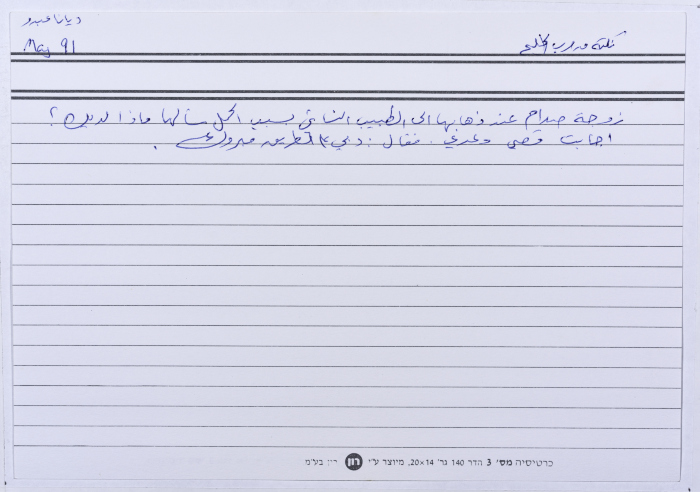 ديانا عبدو
May 91
نكتة حرب الخليج
زوجة صدام عند ذهابها الى الطبيب النسائي بسبب الحمل سألها ماذا لديك؟
اجابت قصي وعدي. فقال: دبي عالطريق مبروك.
כרטיסיה מס' 3 הדר 140 גר' 20×14, מיוצר ע"י רון רין בע"מ